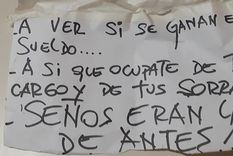 -A VER SI SE GANAN E
SUELDO....
-A SI QUE OCUPATE DE
CARGO Y DE TUS SORRA
-'SEÑOS ERAN
DE ANTES!